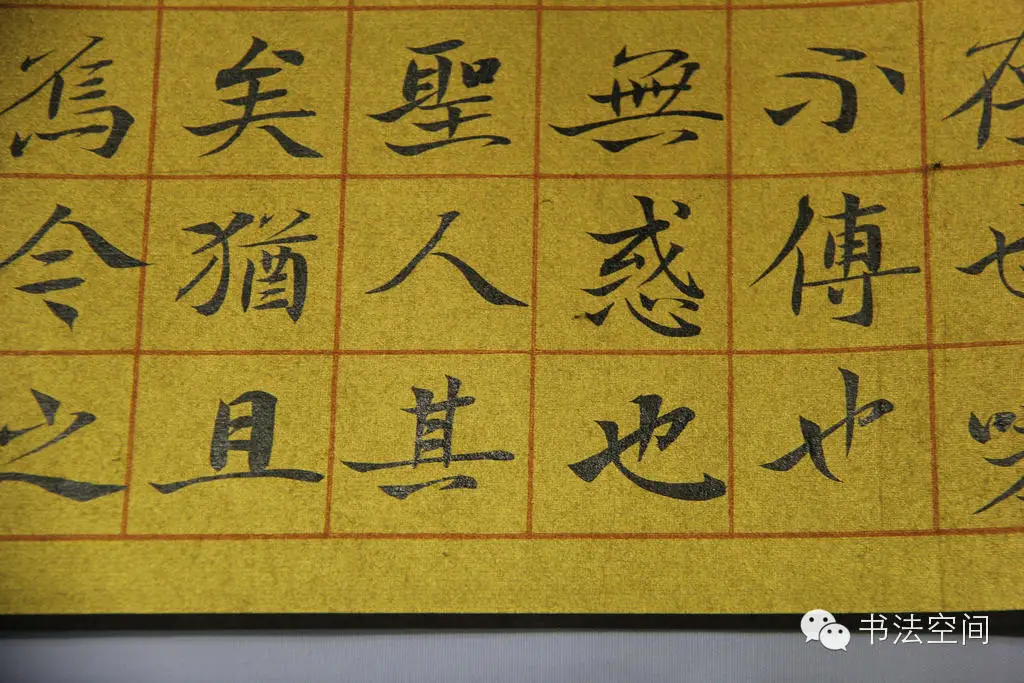 存也嗟
不傳也
無惑也
聖人其
矣猶且
焉今之
书法空间